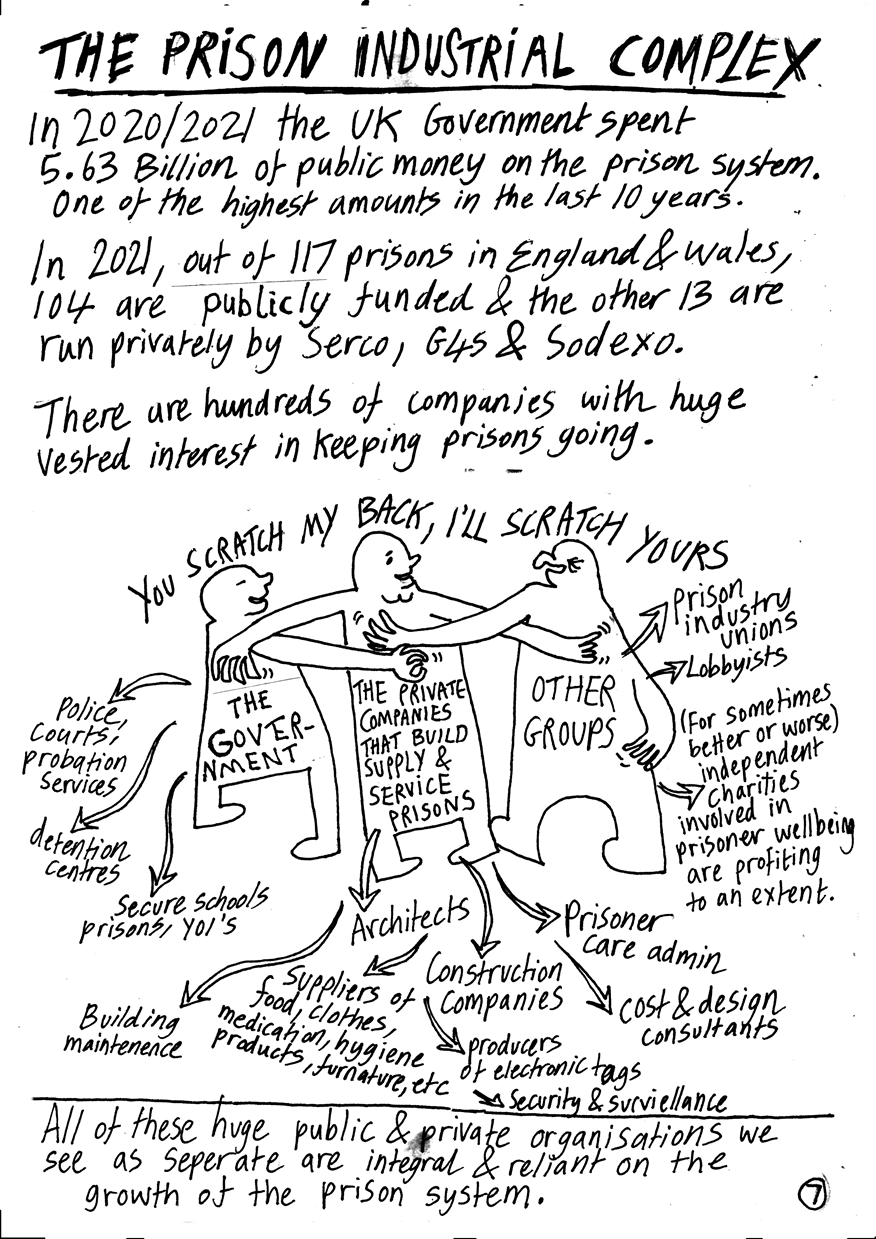 THE PRISON INDUSTRIAL COMPLEX
In 2020/2021 the UK Government spent
5.63 Billion of public money on the prison system.
One of the highest amounts in the last 10 years.
In 2021, out of 117 prisons in England & Wales,
104 are publicly funded & the other 13 are
run privately by Serco, G4S & Sodexo.
There are hundreds of companies with huge
vested interest in keeping prisons going.
YOU SCRATCH MY BACK, I'LL SCRATCH YOURS
THE
GOVER-
NMENT
THE PRIVATE
COMPANIES
THAT BUILD
SUPPLY &
SERVICE
PRISONS
OTHER
GROUPS
Prison
industry
unions
Lobbyists
(For sometimes
better or worse)
independent
charities
involved in
prisoner wellbeing
are profiting
to an extent.
Police,
Courts,
probation
Services
detention
centres
Secure schools
prisons, YOI'S
Architects
Building
maintenence
Suppliers of
food, clothes,
medication, hygiene
products, furnature, etc
Construction
Companies
producers
of electronic tags
Security & surviellance
Prisoner
care admin
cost & design
consultants
All of these huge public & private organisations we
see as seperate are integral & reliant on the
growth of the prison system.
7